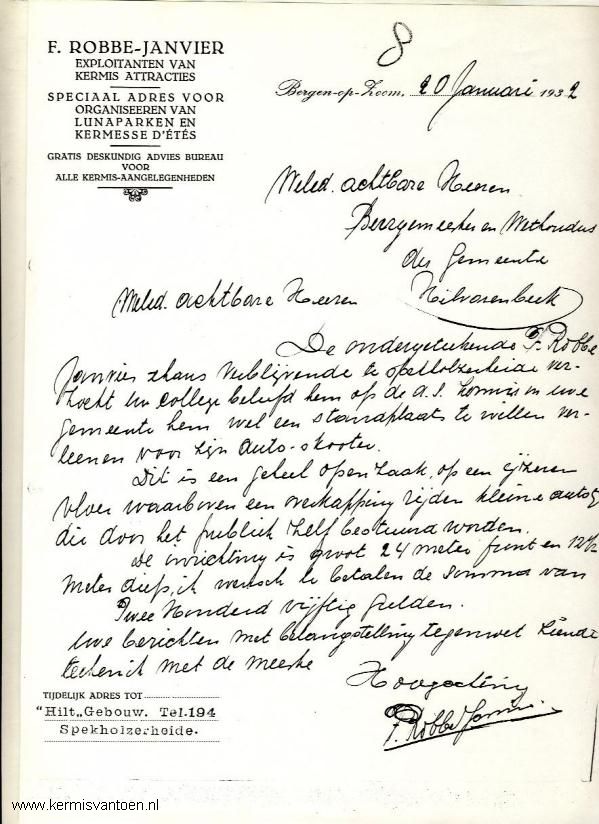 8
F. ROBBE-JANVIER
EXPLOITANTEN VAN
KERMIS ATTRACTIES
SPECIAAL ADRES VOOR
ORGANISEEREN VAN
LUNAPARKEN EN
KERMESSE D'ÉTÉS
GRATIS DESKUNDIG ADVIES BUREAU
VOOR
ALLE KERMIS-AANGELEGENHEDEN
Bergen-op-Zoom, 20 Januari 1932
Weled. achtbare Heeren
Burgemeester en Wethouders
der Gemeente
Hilvarenbeek
Weled. achtbare Heeren
De ondergeteekende F. Robbe
Janvier thans verblijvende te Spekholzerheide ver-
zocht uw college beleefd hem op de a.s. kermis in uwe
gemeente hem wel een standplaats te willen ver-
leenen voor zijn Auto-skooter.
Dit is een geheel open zaak, op een ijzeren
vloer waarboven een overkapping rijden kleine autos
die door het publiek zelf bestuurd worden.
De inrichting is groot 24 meter front en 12½
meter diep, ik wensch te betalen de somma van
Twee Honderd vijftig gulden.
Uwe berichten met belangstelling tegemoet ziende
teeken ik met de meeste
Hoogachting
F. Robbe Janvier
TIJDELIJK ADRES TOT
"Hilt„Gebouw. Tel.194
Spekholzerheide.
www.kermisvantoen.nl